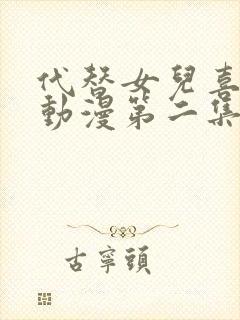 代替女兒喜
動漫第二集
古寧頭